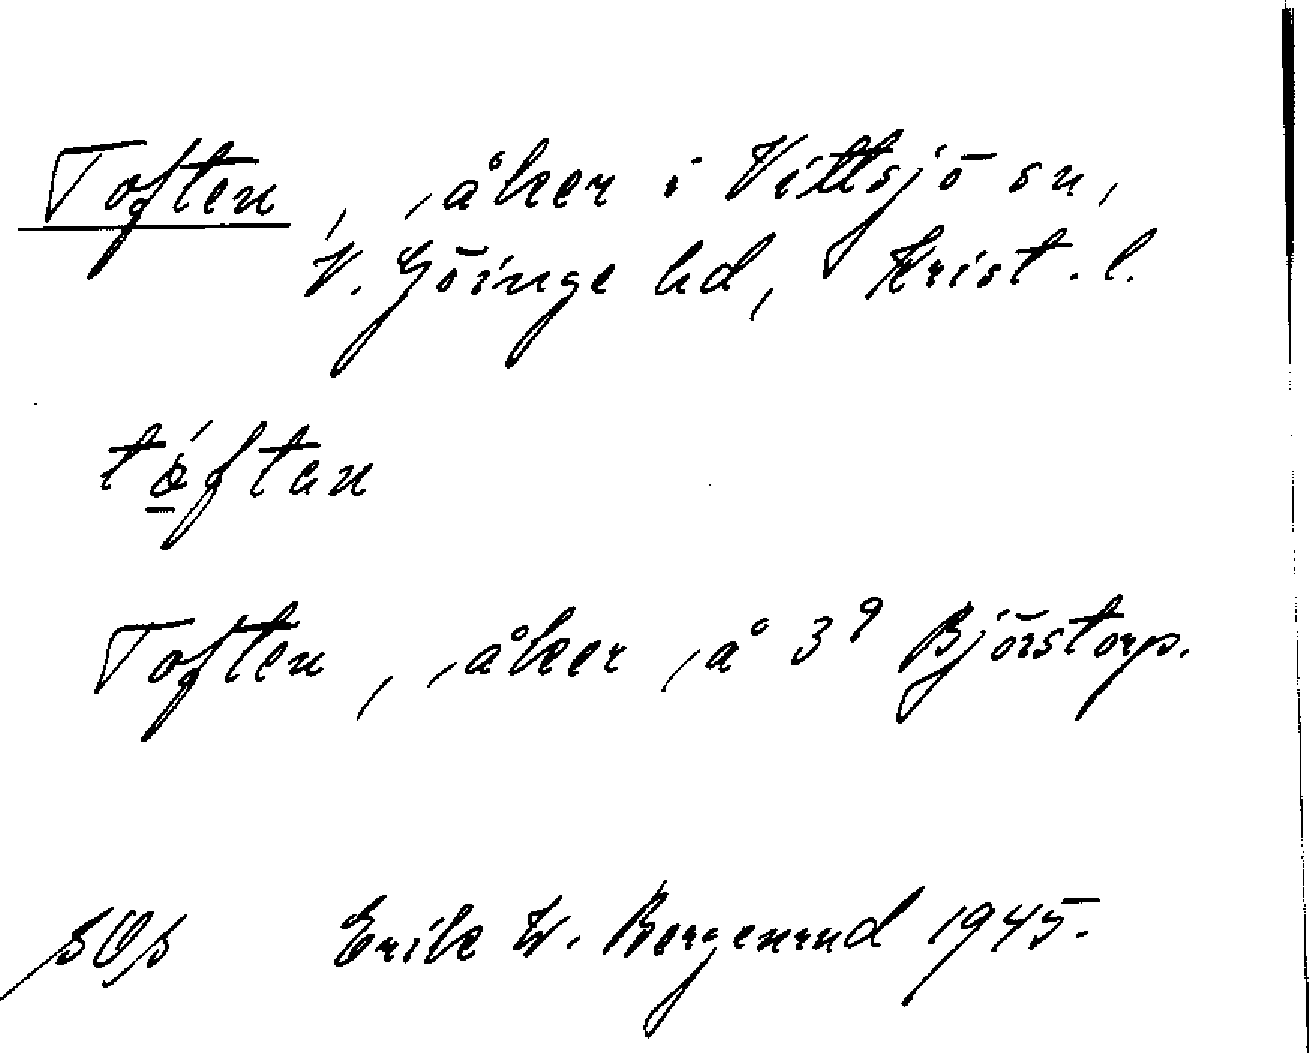 Toften, åker i Vittsjö sn,
V. Göinge hd, Krist. l.
Toften, åker å 3⁹ Björstorp.
Erik W. Bergenrud 1945.